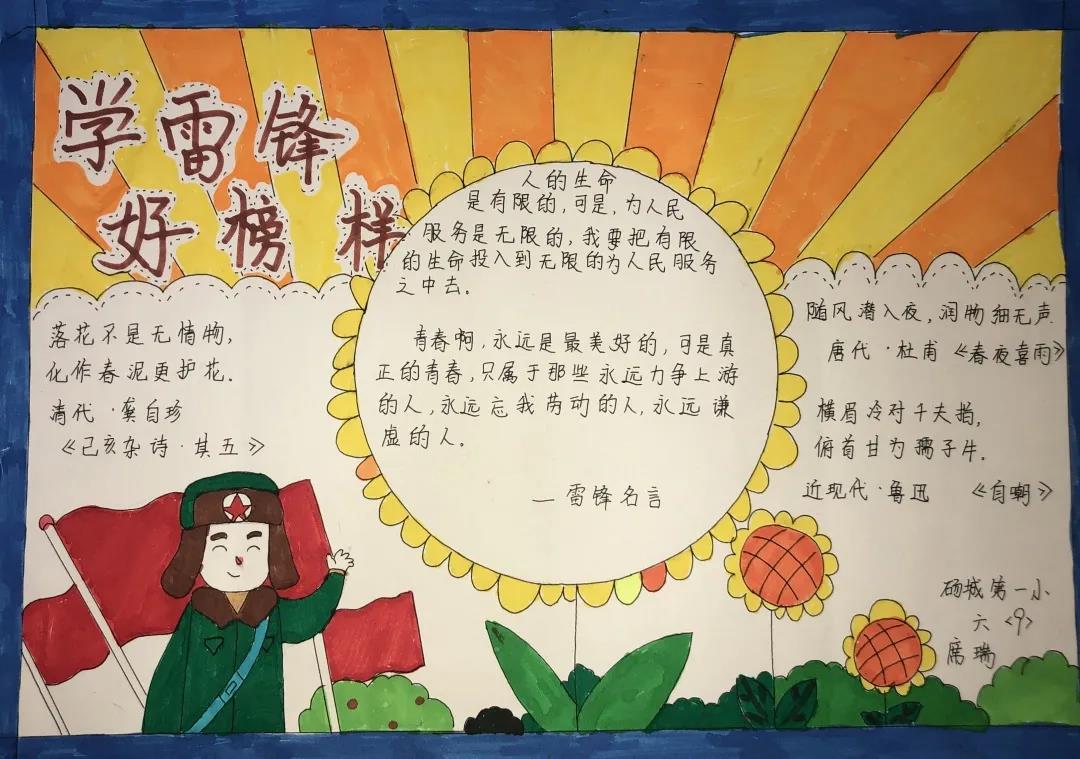 学雷锋
好榜样
人的生命
是有限的,可是,为人民
服务是无限的,我要把有限
的生命投入到无限的为人民服务
之中去。
青春啊,永远是最美好的,可是真
正的青春,只属于那些永远力争上游
的人,永远忘我劳动的人,永远谦
虚的人。
—雷锋名言
落花不是无情物,
化作春泥更护花.
清代·龚自珍
《己亥杂诗·其五》
随风潜入夜,润物细无声.
唐代·杜甫《春夜喜雨》
横眉冷对千夫指,
俯首甘为孺子牛.
近现代·鲁迅 《自嘲》
砀城第一小
六<9>
席瑞